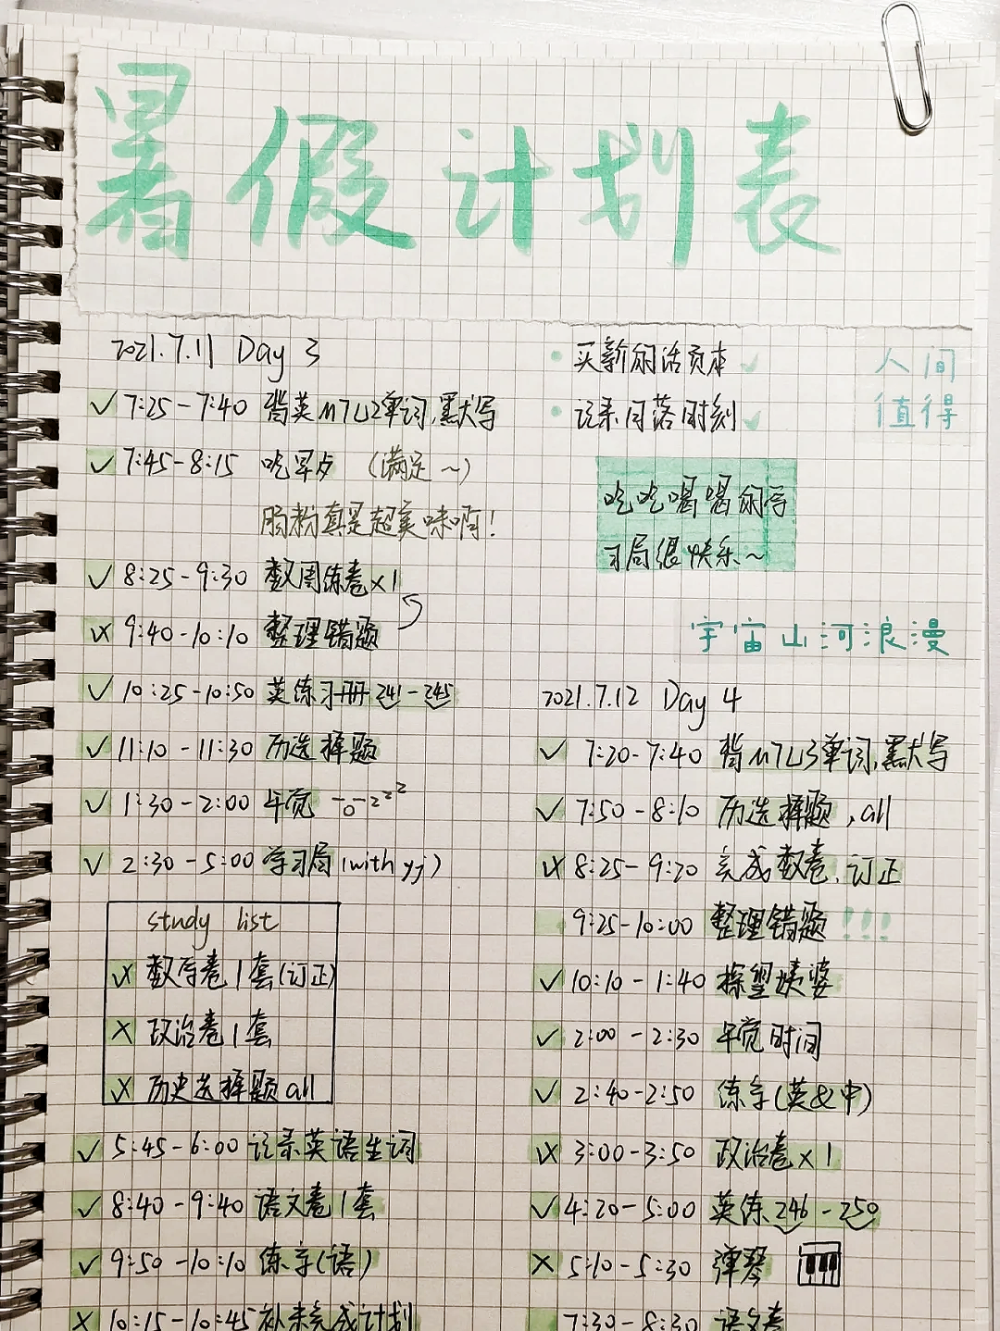 暑假计划表
2021.7.11 Day 3
✓ 7:25-7:40 背英M7U2单词,默写
✓ 7:45-8:15 吃早点 (满足~)
肠粉真是超美味啊!
✓ 8:25-9:30 数周练卷×1
✓× 9:40-10:10 整理错题
✓ 10:25-10:50 英练习册 241-245
✓ 11:10-11:30 历选择题
✓ 1:30-2:00 午觉 zzz
✓ 2:30-5:00 学习局(with yj)
study list
✓× 数学卷1套(订正)
× 政治卷1套
× 历史选择题all
✓ 5:45-6:00 记录英语生词
✓ 8:40-9:40 语文卷1套
✓ 9:50-10:10 练字(语)
× 10:15-10:45 补未完成计划
• 买新的活页本 ✓
• 记录月落时刻 ✓
人间
值得
吃吃喝喝的学
习局很快乐~
宇宙山河浪漫
2021.7.12 Day 4
✓ 7:20-7:40 背M7U3单词,默写
✓ 7:50-8:10 历选择题,all
✓× 8:25-9:20 完成数卷,订正
9:25-10:00 整理错题!!!
✓ 10:10-1:40 探望姨婆
✓ 2:00-2:30 午觉时间
✓ 2:40-2:50 练字(英&中)
✓× 3:00-3:50 政治卷×1
✓ 4:20-5:00 英练 246-250
× 5:10-5:30 弹琴
7:30-8:30 语文卷